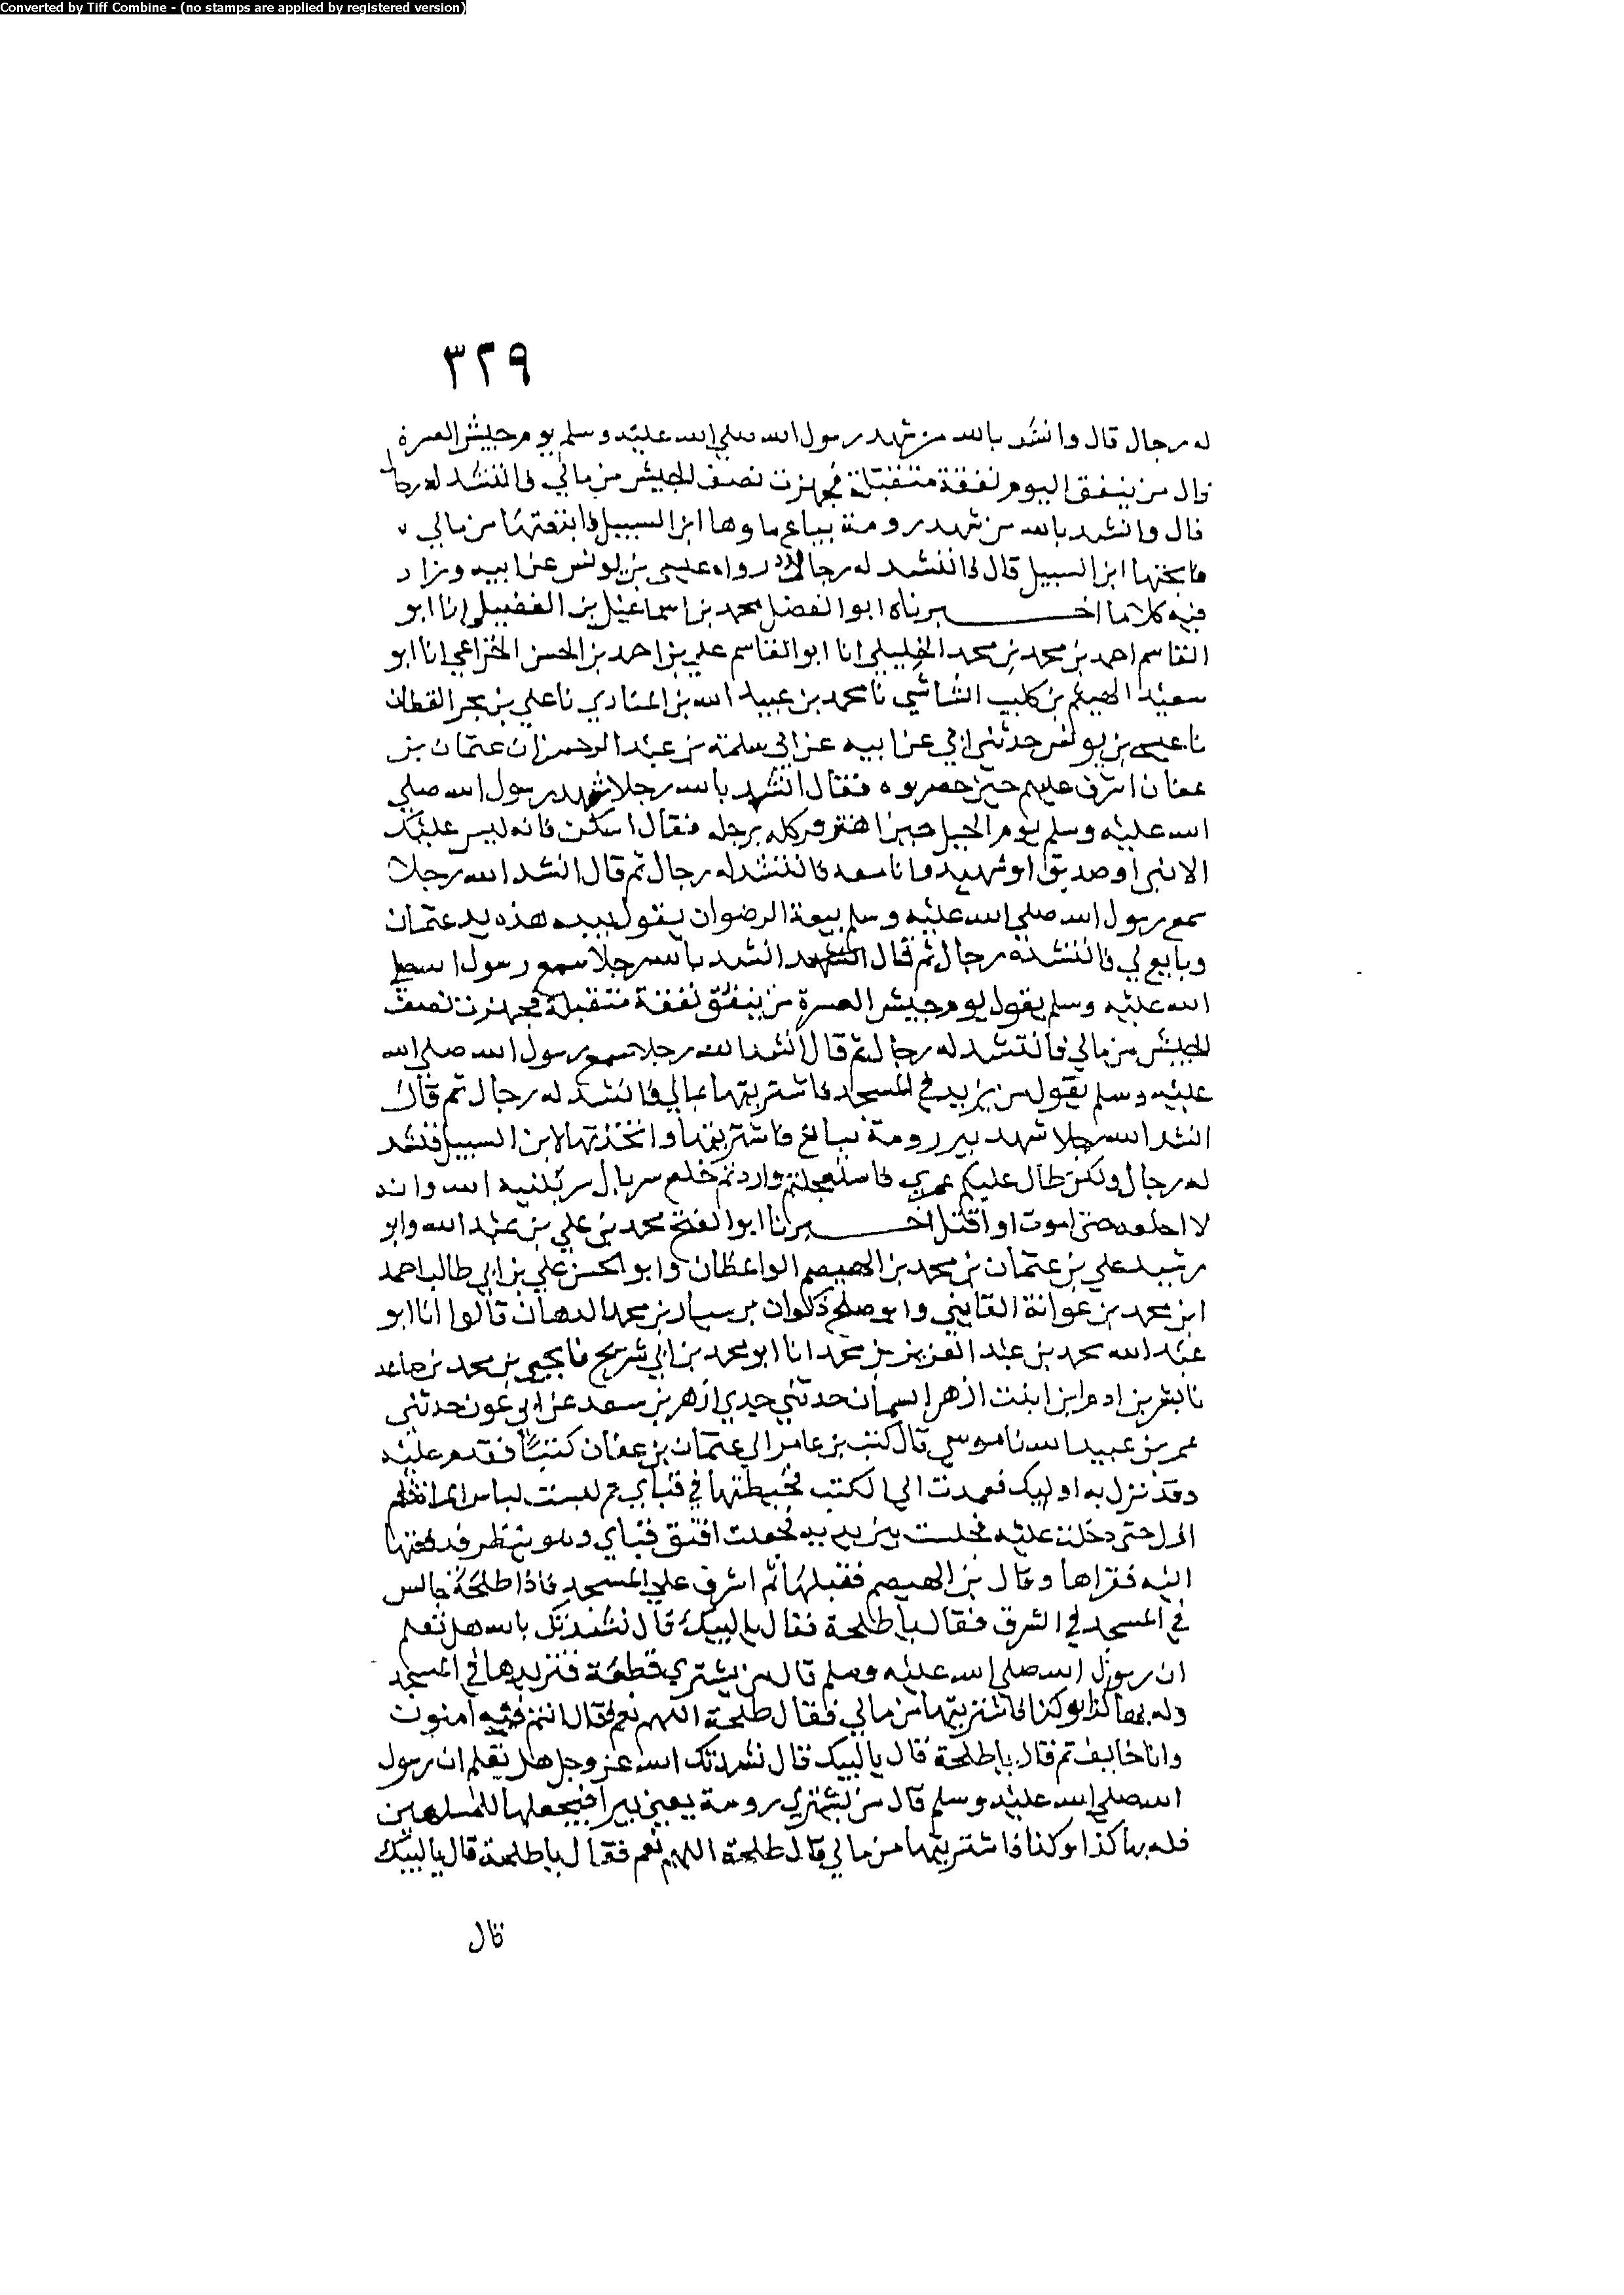 Converted by Tiff Combine - (no stamps are applied by registered version)
٣٢٩
له رجال قال وانشد بالله من شهد رسول الله صلى الله عليه وسلم يوم جيش العسرة
قال من ينفق اليوم نفقة متقبلة فجهزت نصف الجيش من مالي فانتشد له رجال
قال وانشد بالله من شهد رومة يباع ماوها ابن السبيل فابتعتها من مالي
فابحتها ابن السبيل قال فانتشد له رجال رواه عيسى بن يونس عن ابيه وزاد
فيه كلاما اخبرناه ابو الفضل محمد بن اسماعيل بن الفضيلي انا ابو
القاسم احمد بن محمد بن محمد الخليلي انا ابو القاسم علي بن احمد بن الحسن الخزاعي انا ابو
سعيد الهيثم بن كليب الشاشي نا محمد بن عبيد الله بن المنادي نا علي بن بحر القطان
نا عيسى بن يونس حدثني ابي عن ابيه عن ابي سلمة بن عبد الرحمن ان عثمان بن
عفان اشرف عليهم حين حصروه فقال انشد بالله رجلا شهد رسول الله صلى
الله عليه وسلم يوم الجبل حين اهتز فركله برجله فقال اسكن فانه ليس عليك
الا نبي او صديق او شهيد وانا معه فانتشد له رجال ثم قال انشد الله رجلا
سمع رسول الله صلى الله عليه وسلم بيعة الرضوان يقول بيده هذه يد عثمان
وبايع لي فانتشد له رجال ثم قال انشد بالله رجلا سمع رسول الله صلى
الله عليه وسلم يقول يوم جيش العسرة من ينفق نفقة متقبلة فجهزت نصف
الجيش من مالي فانتشد له رجال ثم قال انشد الله رجلا سمع رسول الله صلى الله
عليه وسلم يقول من يزيد في المسجد فاشتريتها بمالي فانشد له رجال ثم قال
انشد الله رجلا شهد بير رومة تباع فاشتريتها واتخذتها لابن السبيل فنشد
له رجال ولكن طال عليكم عمري فاستعجلتم واردتم خلع سربال سربلنيه الله وانه
لا اخلعه حتى اموت او اقتل اخبرنا ابو الفتح محمد بن علي بن عبد الله وابو
رشيد علي بن عثمان بن محمد بن الهيصم الواعظان وابو الحسن علي بن ابي طالب احمد
ابن محمد بن عوانة القايني وابو صلح ذكوان بن سيار بن محمد الدهان قالوا انا ابو
عبد الله محمد بن عبد العزيز بن محمد انا ابو محمد بن ابي شريح نا يحيى بن محمد بن صاعد
نا بشر بن ادم ابن ابنت ازهر السمان حدثني جدي ازهر بن سعد عن ابن عون حدثني
عمر بن عبيد الله نا موسى قال كتب بن عامر الى عثمان بن عفان كتبا فقدم عليه
وقد نزل به اوليك فعمدت الى الكتب فخيطتها في قباي ثم لبست لباس
ازل حتى دخلت عليه فجلست بين يديه فجعلت افتق قباي وهو ينظر فدفعتها
اليه فقراها وقال بن الهيصم فقبلها ثم اشرف على المسجد فاذا طلحة جالس
في المسجد في الشرق فقال يا طلحة فقال يا لبيك قال نشدتك بالله هل تعلم
ان رسول الله صلى الله عليه وسلم قال من يشتري قطعة فنزيدها في المسجد
وله بها كذا وكذا فاشتريتها من مالي فقال طلحة اللهم نعم فقال انتم فيه امنون
وانا خايف ثم قال يا طلحة قال يا لبيك قال نشدتك الله عز وجل هل تعلم ان رسول
الله صلى الله عليه وسلم قال من يشتري رومة يعني بيرا فيجعلها للمسلمين
فله بها كذا وكذا فاشتريتها من مالي قال طلحة اللهم نعم فقال يا طلحة قال يا لبيك
قال